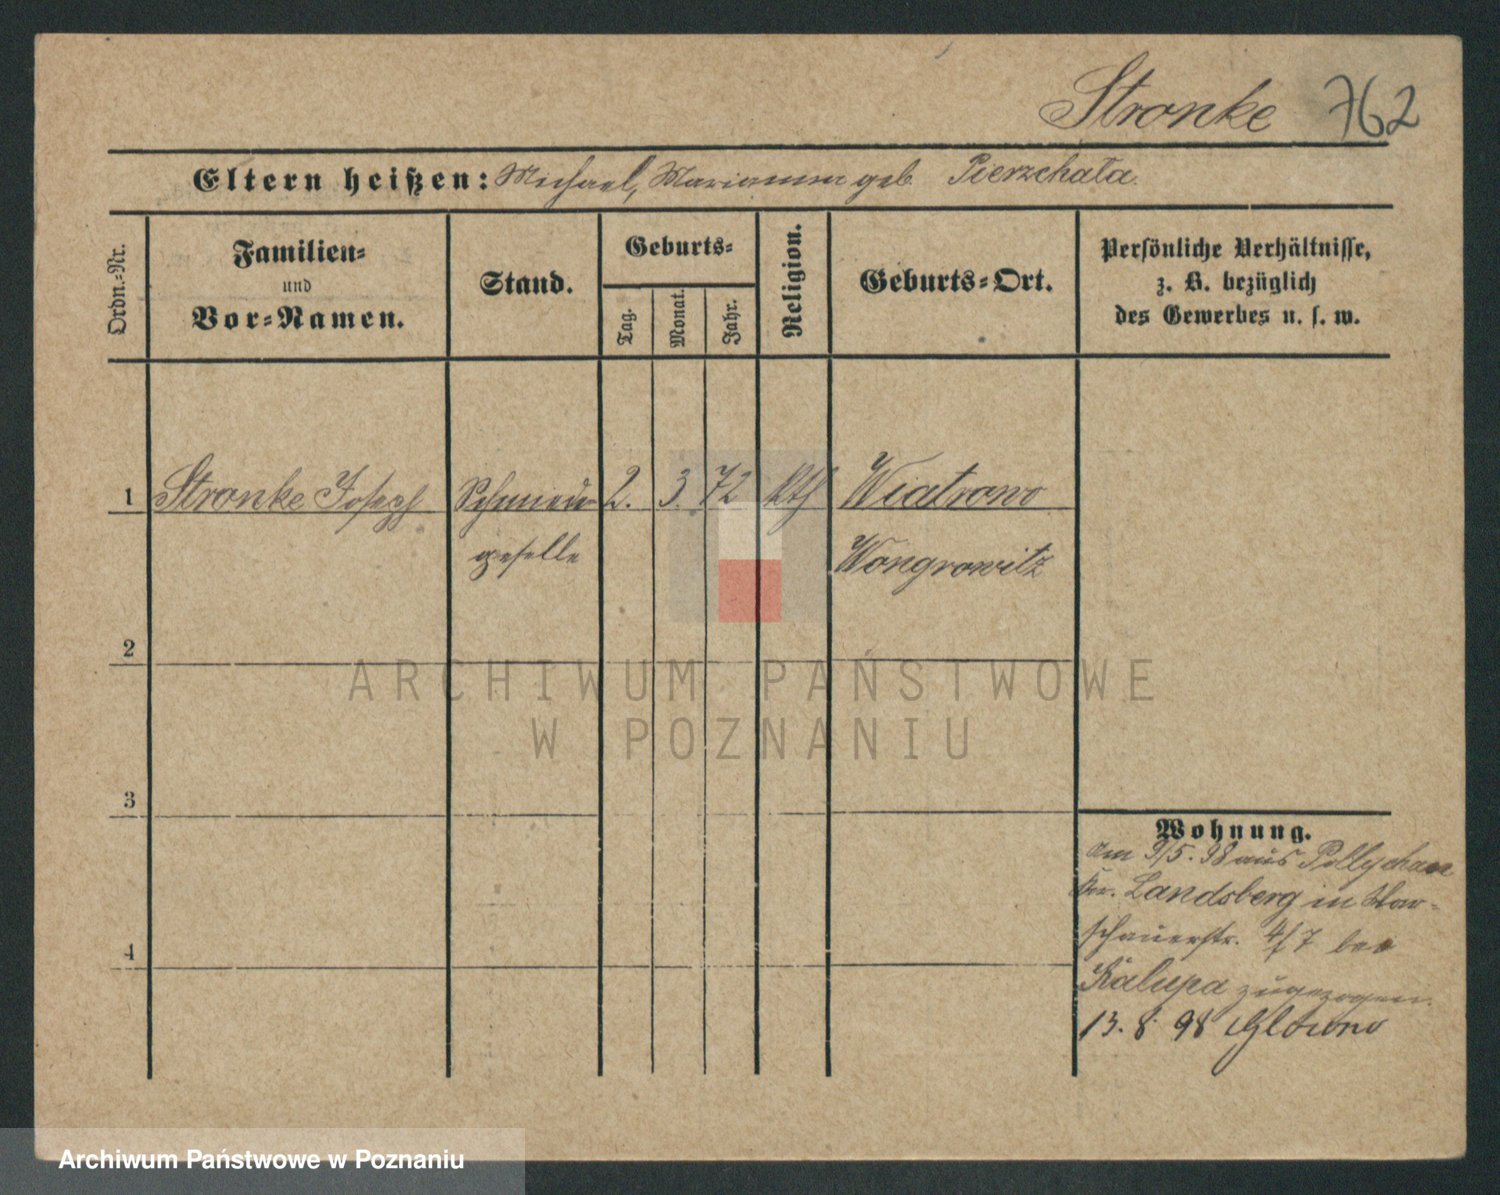 Stronke 762
Eltern heißen: Michael, Marianna geb. Pierzchała
Ordn.-Nr.
Familien-
und
Vor-Namen.
Stand.
Geburts-
Tag.
Monat.
Jahr.
Religion.
Geburts-Ort.
Persönliche Verhältnisse,
z. B. bezüglich
des Gewerbes u. s. w.
1 Stronke Joseph Schmiede- 2. 3. 72 kth Wiatrowo
geselle Wongrowitz
2
ARCHIWUM PAŃSTWOWE
W POZNANIU
3
4
Wohnung.
Am 9/5. 98 aus Pollychen
Kr. Landsberg in War-
schauerstr. 4/7 bei
Kalupa zugezogen.
13. 8. 98 Glowno
Archiwum Państwowe w Poznaniu